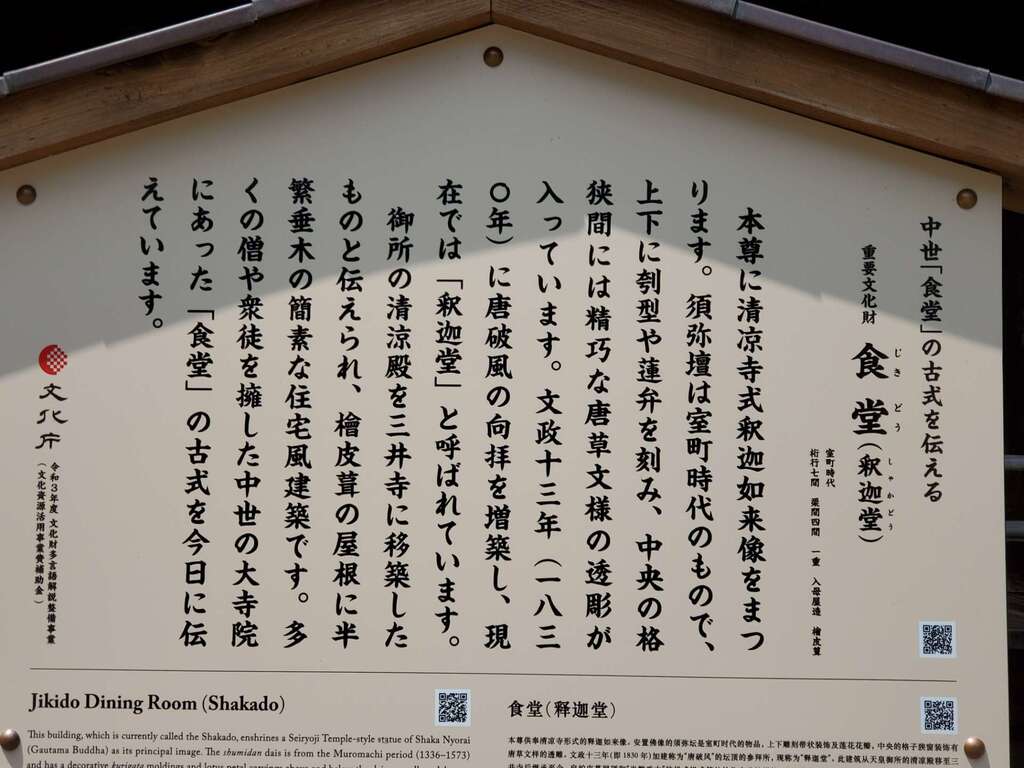 中世「食堂」の古式を伝える
重要文化財
食堂(釈迦堂)
じきどう
しゃかどう
室町時代
桁行七間 梁間四間 一重 入母屋造 檜皮葺
本尊に清凉寺式釈迦如来像をまつ
ります。須弥壇は室町時代のもので、
上下に刳型や蓮弁を刻み、中央の格
狭間には精巧な唐草文様の透彫が
入っています。文政十三年(一八三
〇年)に唐破風の向拝を増築し、現
在では「釈迦堂」と呼ばれています。
御所の清涼殿を三井寺に移築した
ものと伝えられ、檜皮葺の屋根に半
繁垂木の簡素な住宅風建築です。多
くの僧や衆徒を擁した中世の大寺院
にあった「食堂」の古式を今日に伝
えています。
文化庁
令和3年度 文化財多言語解説整備事業
(文化資源活用事業費補助金)
Jikido Dining Room (Shakado)
This building, which is currently called the Shakado, enshrines a Seiryoji Temple-style statue of Shaka Nyorai
(Gautama Buddha) as its principal image. The shumidan dais is from the Muromachi period (1336–1573)
and has a decorative kurigata moldings and lotus petal carvings above and below
食堂(释迦堂)
本尊供奉清凉寺形式的释迦如来像。安置佛像的须弥坛是室町时代的物品,上下雕刻带状装饰及莲花花瓣,中央的格子狭窗装饰有
唐草文样的透雕。文政十三年(即 1830 年)加建称为“唐破风”的坛顶的参拜所,现称为“释迦堂”。此建筑从天皇御所的清凉殿移至三